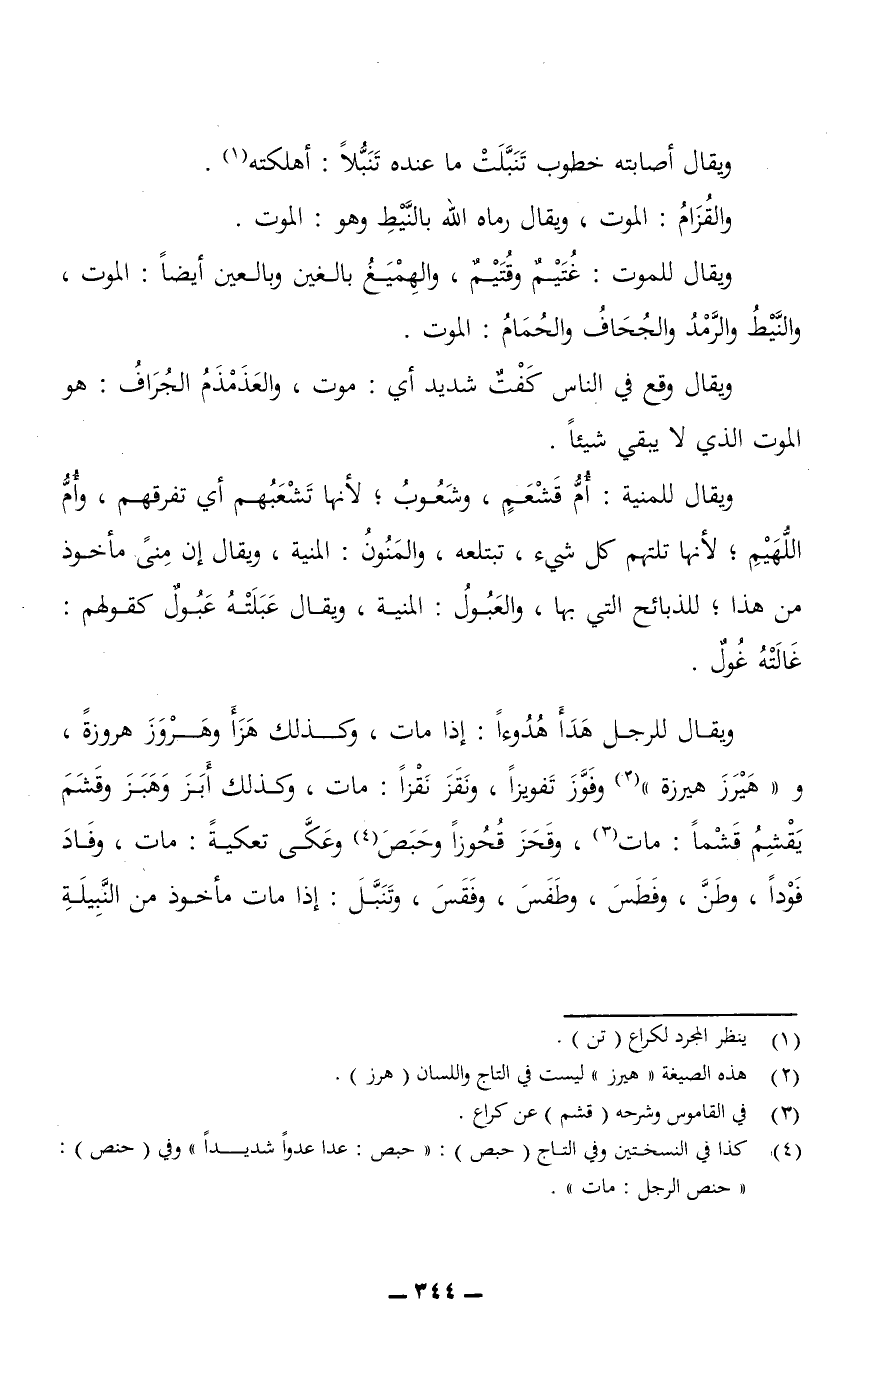 ويقال أصابته خطوب تَنَبَّلَتْ ما عنده تَنَبُّلاً : أهلكته(١) .
والقُزَامُ : الموت ، ويقال رماه الله بالنَّيْطِ وهو : الموت .
ويقال للموت : غُتَيْمٌ وقُتَيْمٌ ، والهِمْيَغُ بالغين وبالعين أيضاً : الموت ،
والنَّيْطُ والرَّمْدُ والجُحَافُ والحُمَامُ : الموت .
ويقال وقع في الناس كَفْتٌ شديد أي : موت ، والعَذَمْذَمُ الجُرَافُ : هو
الموت الذي لا يبقي شيئاً .
ويقال للمنية : أُمُّ قَشْعَمٍ ، وشَعُوبُ ؛ لأنها تَشْعَبُهم أي تفرقهم ، وأُمُّ
اللُّهَيْمِ ؛ لأنها تلتهم كل شيء ، تبتلعه ، والمَنُونُ : المنية ، ويقال إن مِنىً مأخوذ
من هذا ؛ للذبائح التي بها ، والعَبُولُ : المنية ، ويقال عَبَلَتْهُ عَبُولٌ كقولهم :
غَالَتْهُ غُولٌ .
ويقال للرجل هَدَأَ هُدُوءاً : إذا مات ، وكذلك هَزَأَ وهَرْوَزَ هروزةً ،
و « هَيْرَزَ هيرزة »(٢) وفَوَّزَ تَفويزاً ، ونَقَزَ نَقْزاً : مات ، وكذلك أَبَزَ وَهَبَزَ وقَشَمَ
يَقْشِمُ قَشْماً : مات(٣) ، وقَحَزَ قُحُوزاً وحَبَصَ(٤) وعَكَّى تعكيةً : مات ، وفَادَ
فَوْداً ، وطَنَّ ، وفَطَسَ ، وطَفَسَ ، وفَقَسَ ، وتَنَبَّلَ : إذا مات مأخوذ من النَّبِيلَةِ
(١) ينظر المجرد لكراع ( تن ) .
(٢) هذه الصيغة « هيرز » ليست في التاج واللسان ( هرز ) .
(٣) في القاموس وشرحه ( قشم ) عن كراع .
(٤) كذا في النسختين وفي التاج ( حبص ) : « حبص : عدا عدواً شديداً » وفي ( حنص ) :
« حنص الرجل : مات » .
ـ ٣٤٤ ـ